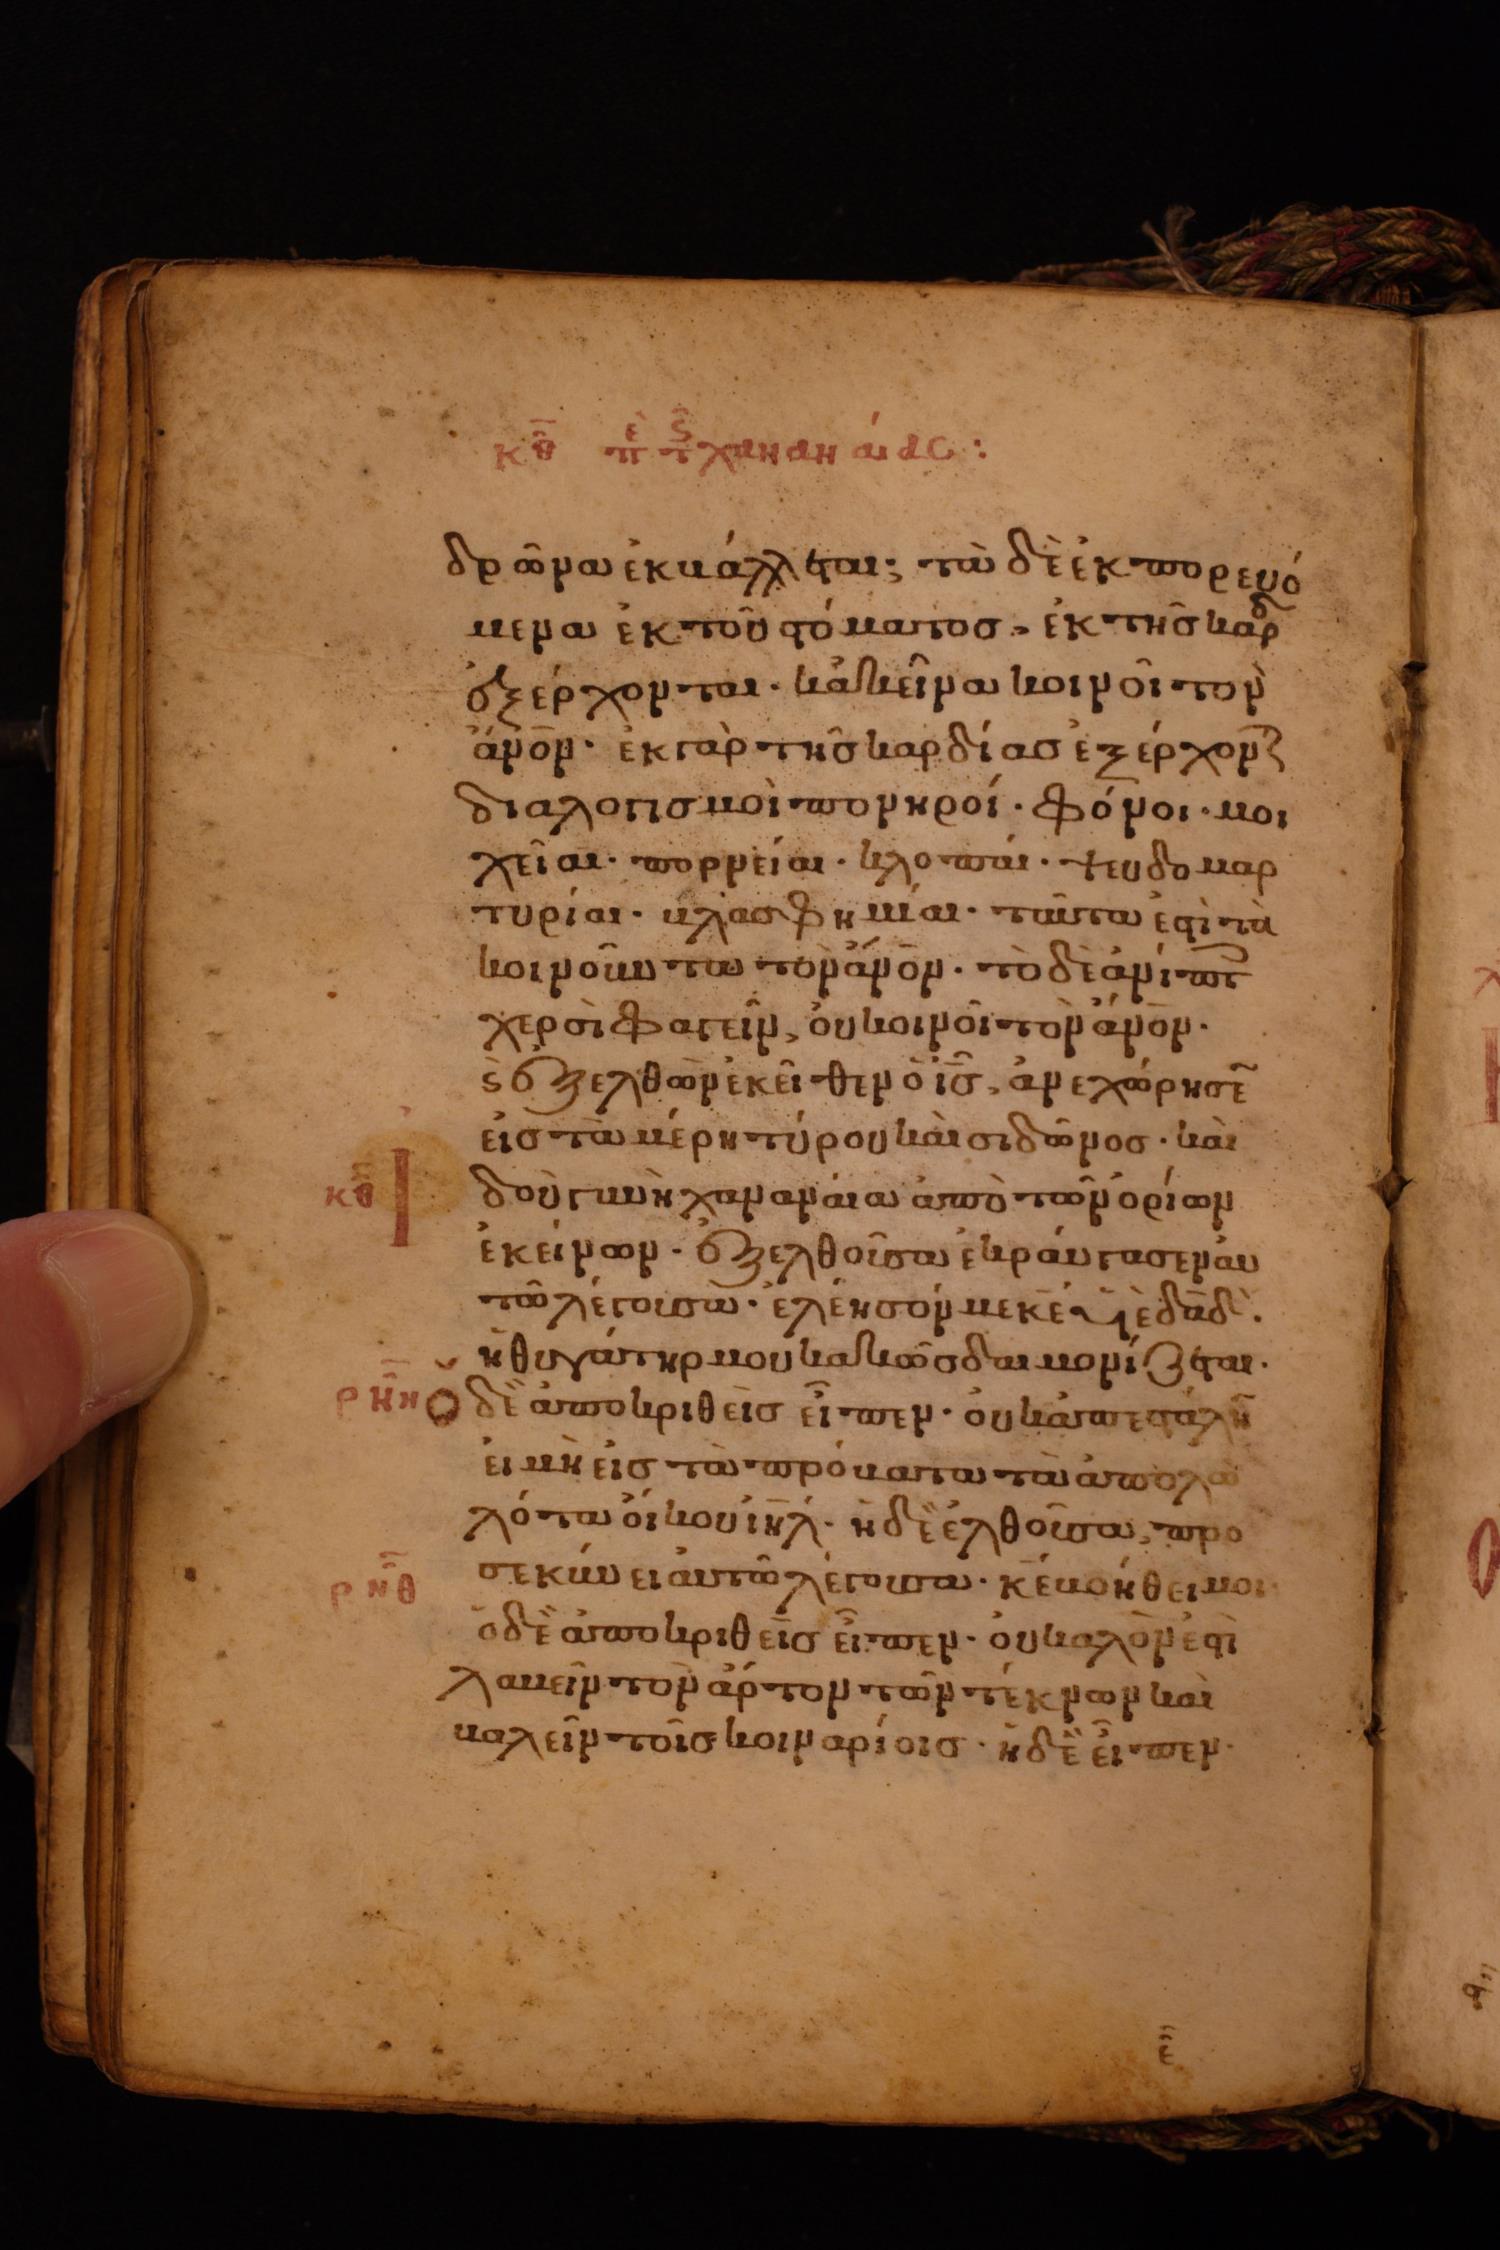 κθ πε τς χανανάιας:
δρῶνα ἐκβάλλεται; τὰ δὲ ἐκπορευό
μενα ἐκ τοῦ στόματος, ἐκ τῆς καρδ
ἐξέρχονται· κἀκεῖνα κοινοῖ τὸν
ἄνον· ἐκ γὰρ τῆς καρδίας ἐξέρχον
διαλογισμοὶ πονηροί· φόνοι· μοι
χεῖαι· πορνείαι· κλοπαί· ψευδομαρ
τυρίαι· βλασφημίαι· ταῦτα ἐστὶ τὰ
κοινοῦντα τὸν ἄνον· τὸ δὲ ἀνίπτ
χερσὶ φαγεῖν, οὐ κοινοῖ τὸν ἄνον·
ϛ ἐξελθὼν ἐκεῖθεν ὁ ις, ἀνεχώρησεν
εἰς τὰ μέρη τύρου καὶ σιδῶνος· καὶ
κθ Ἰδοὺ γυνὴ χαναναία ἀπὸ τῶν ὁρίων
ἐκείνων· ἐξελθοῦσα ἐκράυγασεν ἀυ
τῶ λέγουσα· ἐλέησόν με κε υἱὲ δαδ·
ἡ θυγάτηρ μου κακῶς δαιμονίζεται·
ρνη Ὁ δὲ ἀποκριθεὶς εἶπεν· οὐκ ἀπεστάλην
εἰ μὴ εἰς τὰ πρόβατα τὰ ἀπολω
λότα οἴκου ιηλ· ἡ δὲ ἐλθοῦσα, προ
ρνθ σεκύνει ἀυτῶ λέγουσα· κε βοήθει μοι·
ὁ δὲ ἀποκριθεὶς εἶπεν· οὐ καλὸν ἐστὶ
λαβεῖν τὸν ἄρτον τῶν τέκνων καὶ
βαλεῖν τοῖς κοιναρίοις· ἡ δὲ εἶπεν·